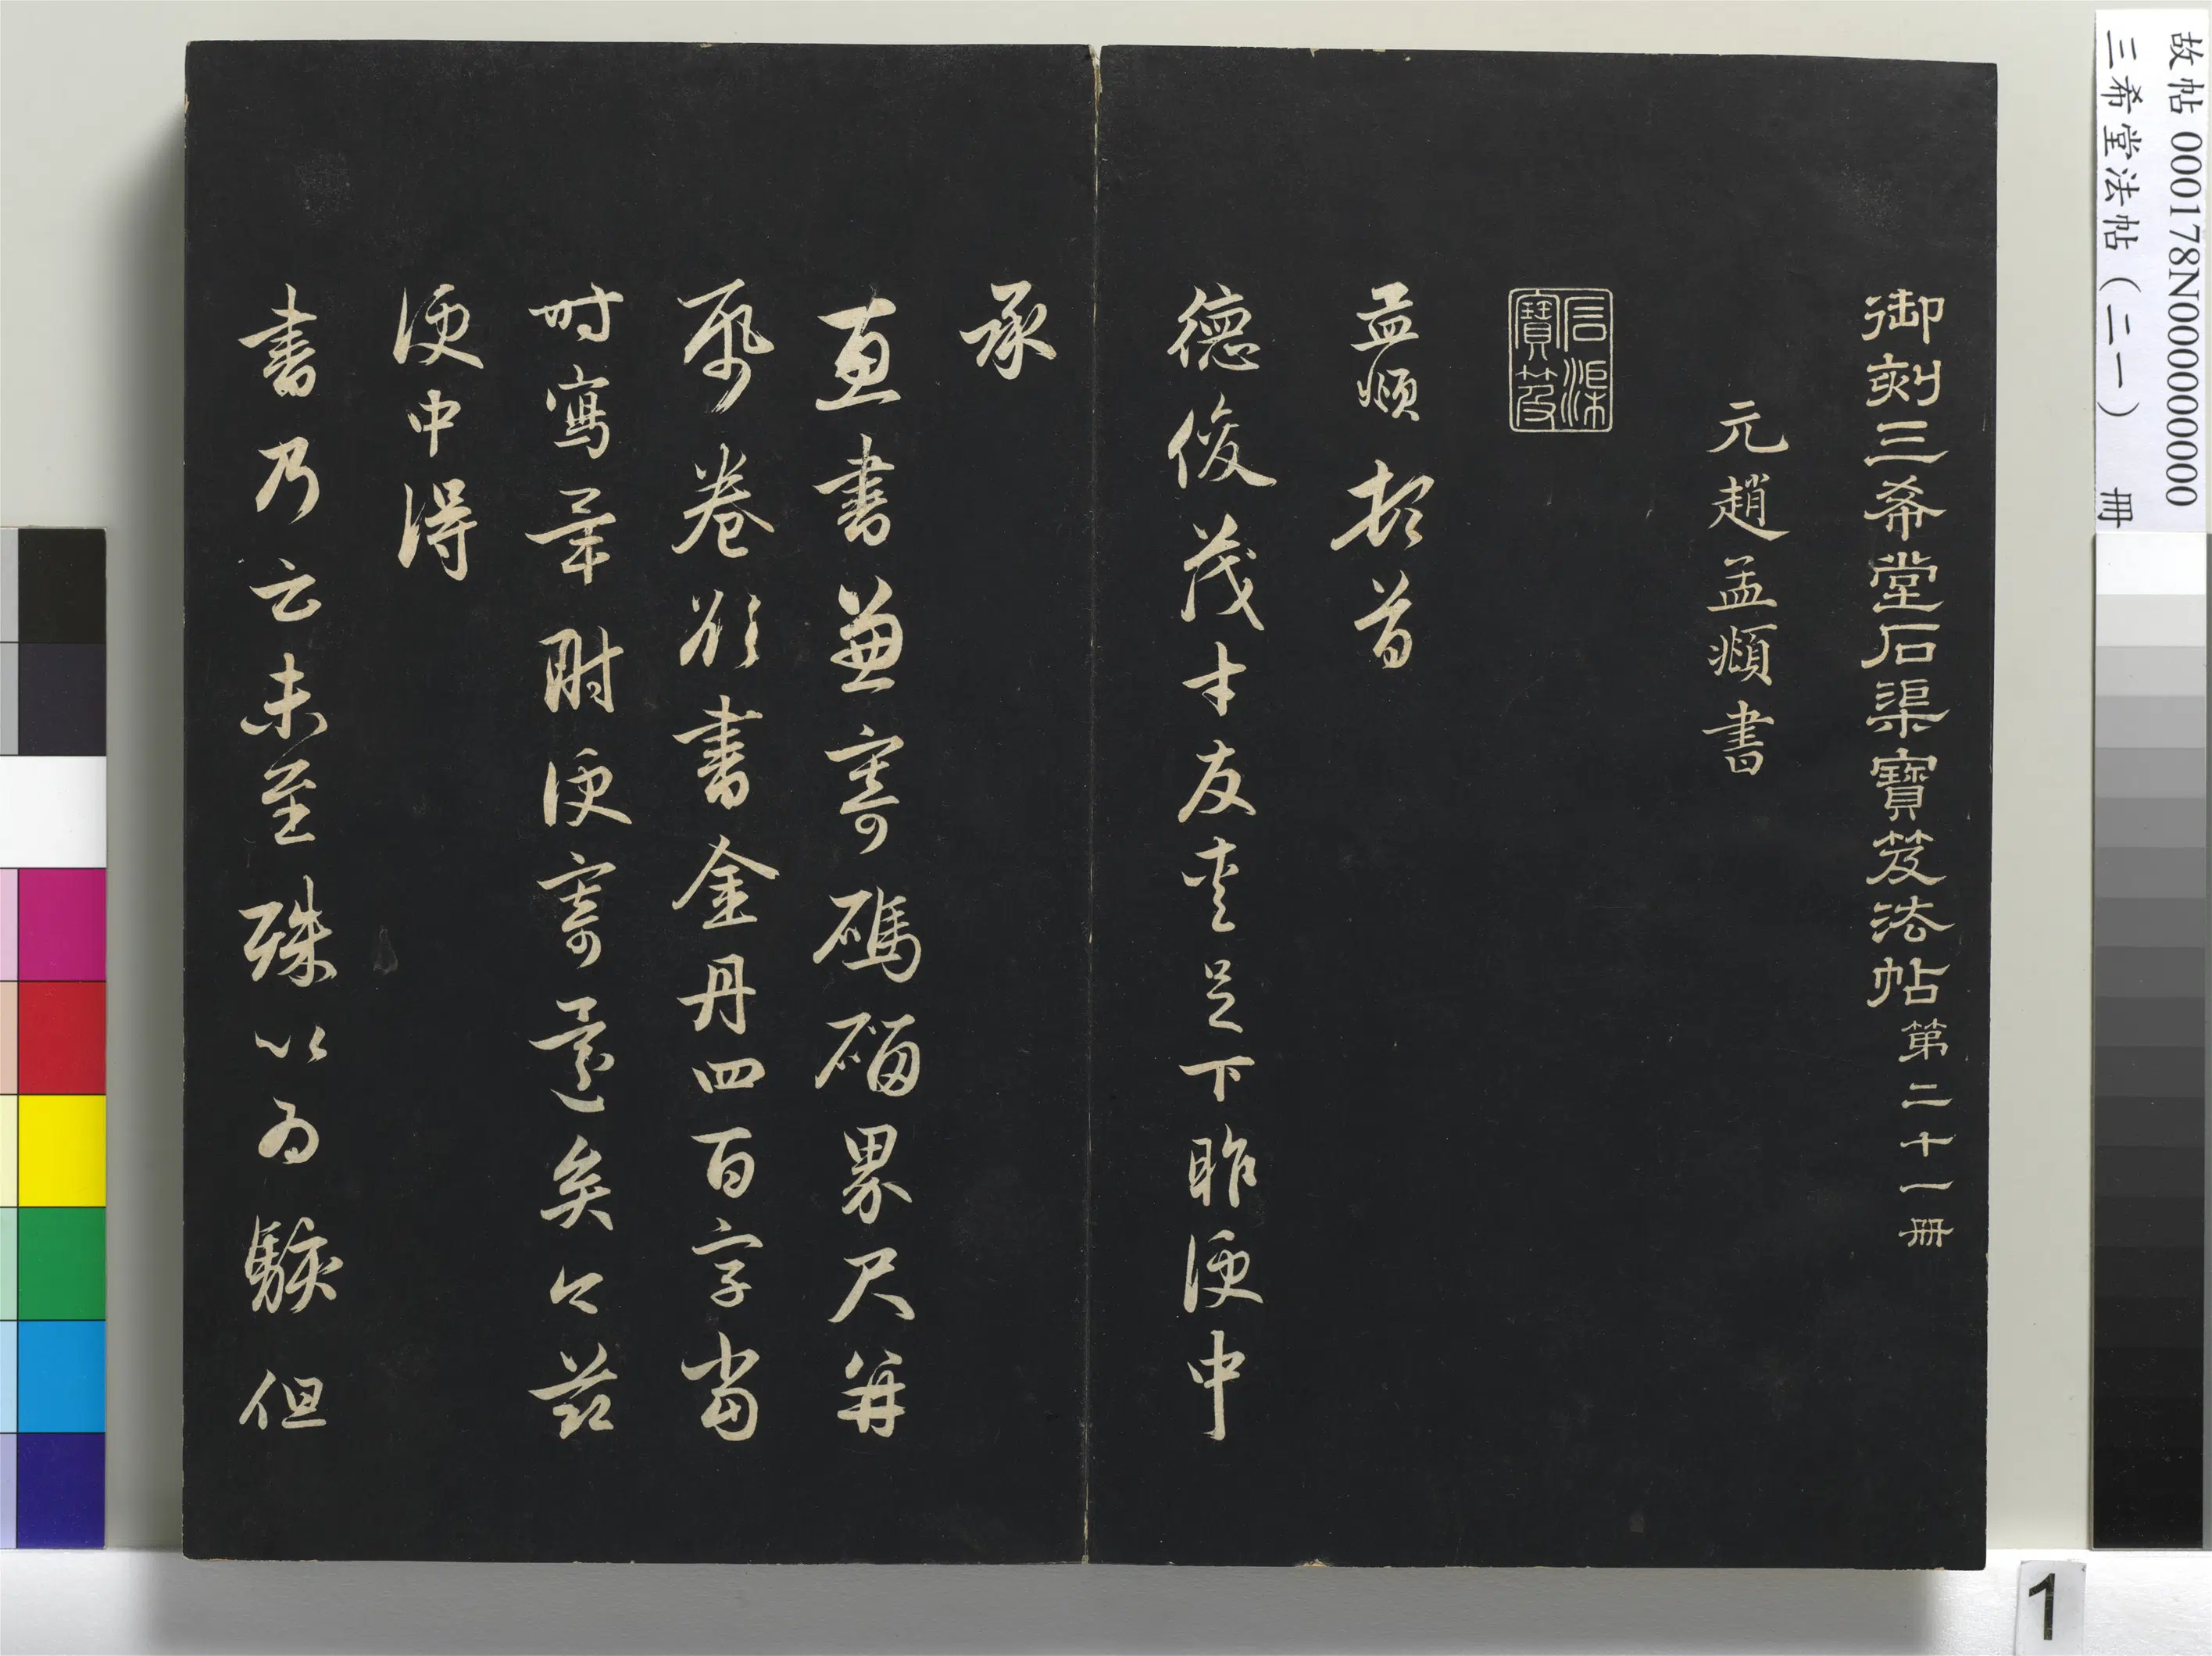 御刻三希堂石渠寶笈法帖第二十一冊
元趙孟頫書
石渠寶笈
孟頫頓首
德俊茂才友愛足下昨便中
承
惠書兼寄碼碯界尺并
帋卷欲書金丹四百字當
時寫畢附便寄還矣今茲
便中得
書乃云未至殊以為駭但
故帖 000178N000000000
三希堂法帖(二一) 冊
1